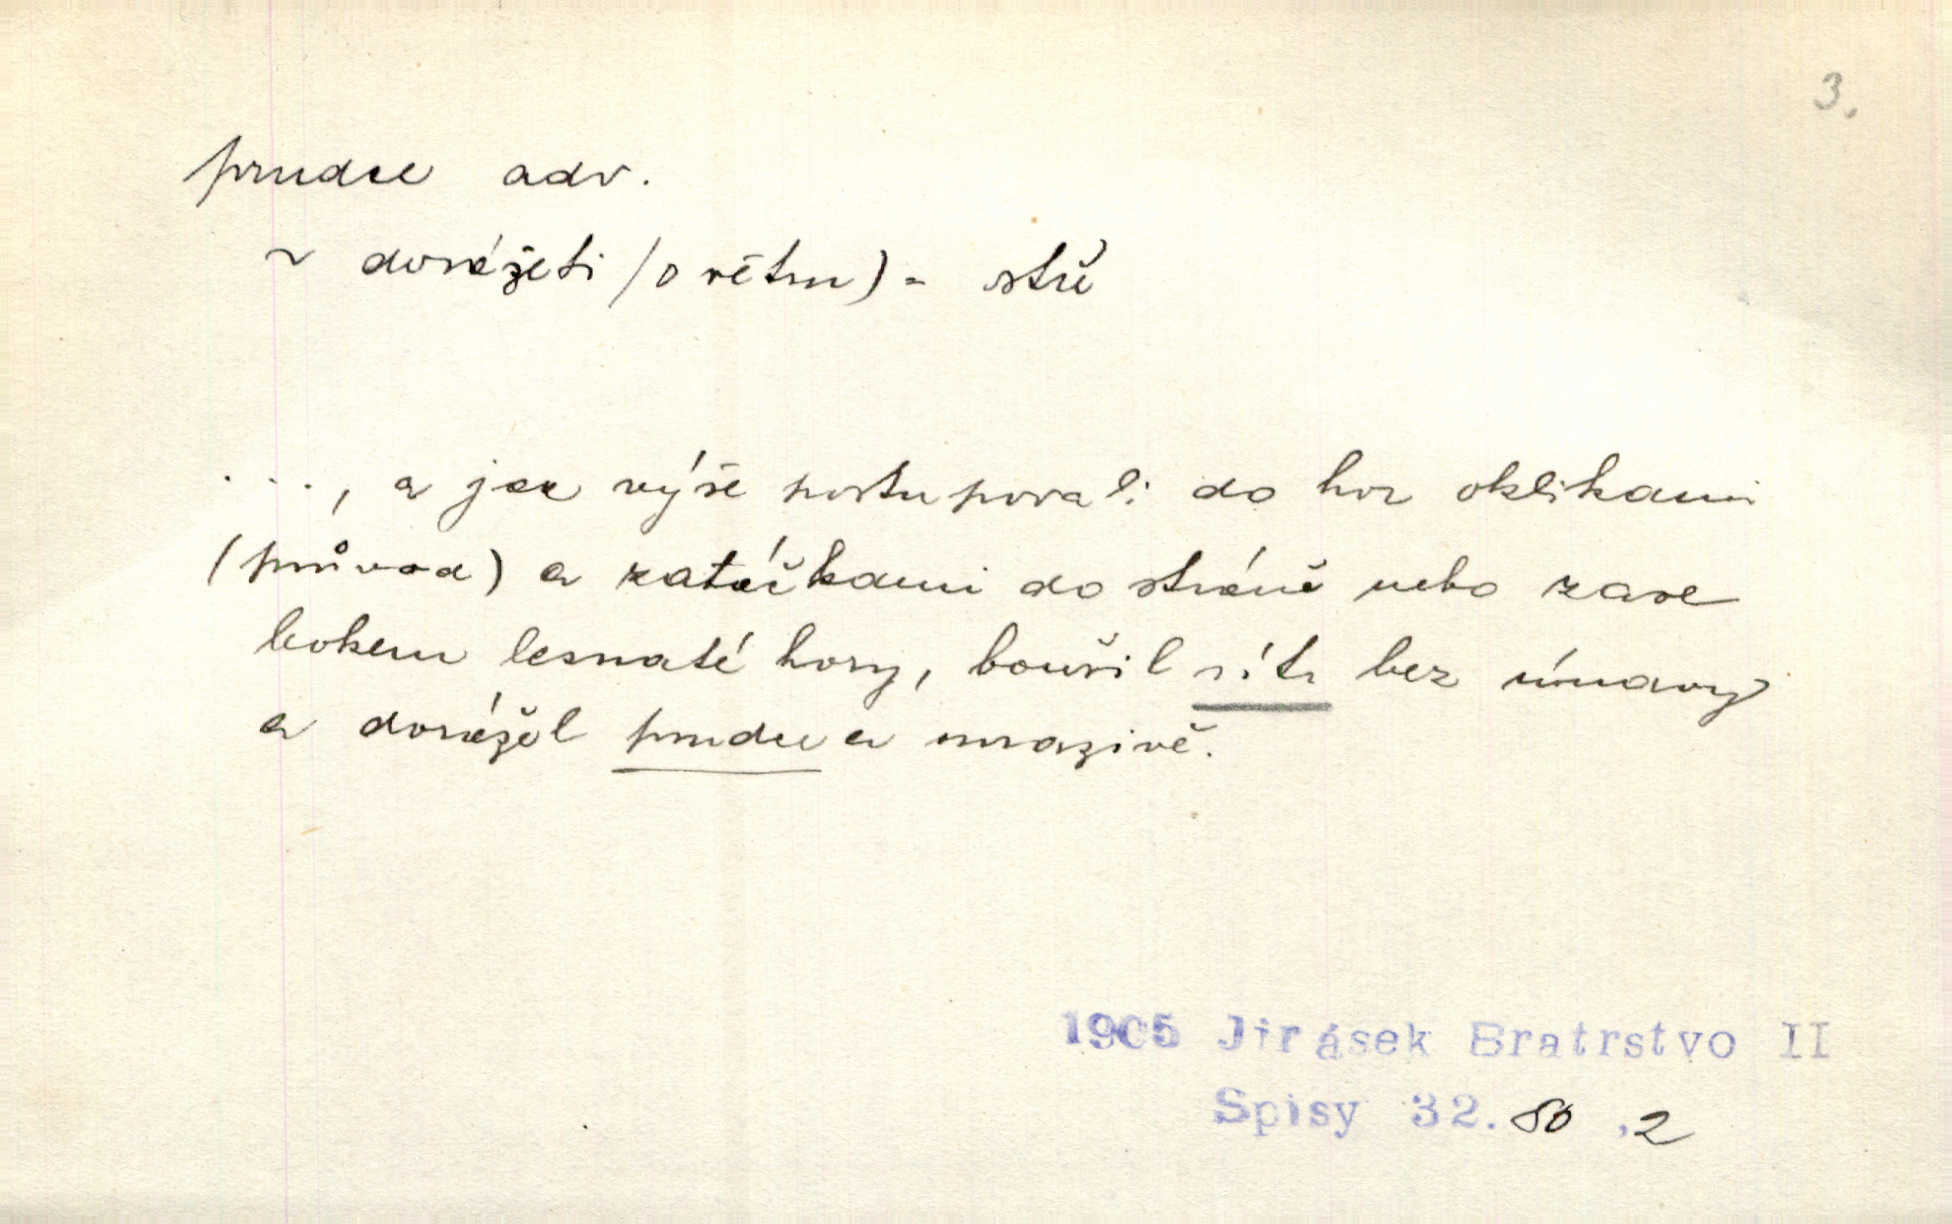 3.
prudce adv.
~ dorážeti (o větru) = stř
..., a jak výše postupovali do hor oklikami
(průvod) a zatáčkami do stráně nebo zase
bokem lesnaté hory, bouřil vítr bez únavy
a dorážel prudce a mrazivě.
1905 Jirásek Bratrstvo II
Spisy 32. 80 ,2